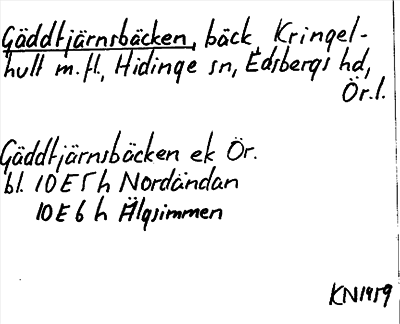 Gäddtjärnsbäcken, bäck, Kringel-
hult m.fl., Hidinge sn, Edsbergs hd,
Ör.l.
Gäddtjärnsbäcken ek Ör.
bl. 10E5h Nordändan
10E6h Älgsimmen
KN1959